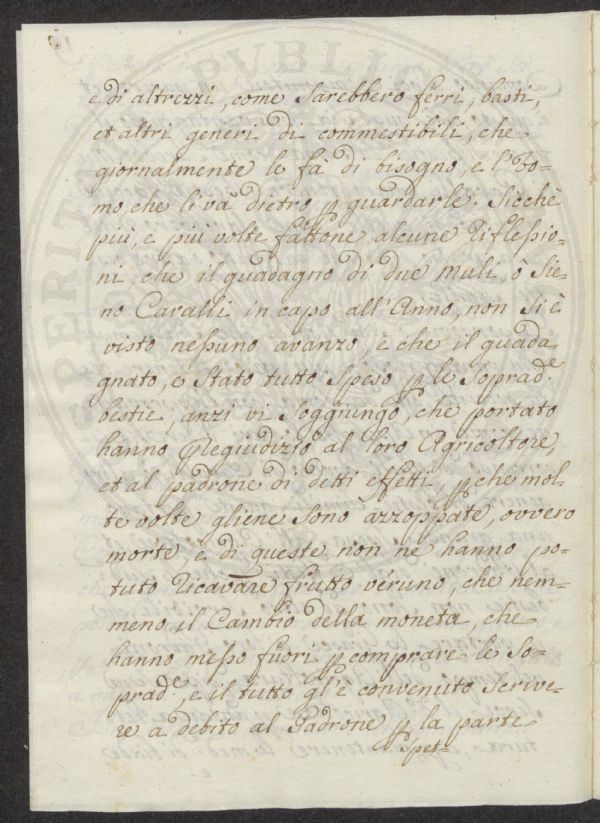 e di altrezzi, come sarebbero ferri, basti,
et altri generi di commestibili, che
giornalmente le fà di bisogno, e l'Uo-
mo, che li và dietro p guardarle. Sicchè
più, e più volte fattone alcune riflessio-
ni, che il guadagno di due muli, ò sie-
no Cavalli in capo all'Anno, non si è
visto nessuno avanzo, e che il guada
gnato, e stato tutto speso p le soprad.e
bestie, anzi vi soggiungo, che portato
hanno pregiudizio al loro Agricoltore,
et al padrone di detti effetti, p che mol-
te volte gliene sono azzoppate, ovvero
morte, e di queste non ne hanno po-
tuto ricavare frutto veruno, che nem-
meno il Cambio della moneta, che
hanno messo fuori p comprare le so-
prad.e, e il tutto gl'è convenuto scrive-
re a debito al Padrone p la parte
spet-
PVBLIC
SPERIT